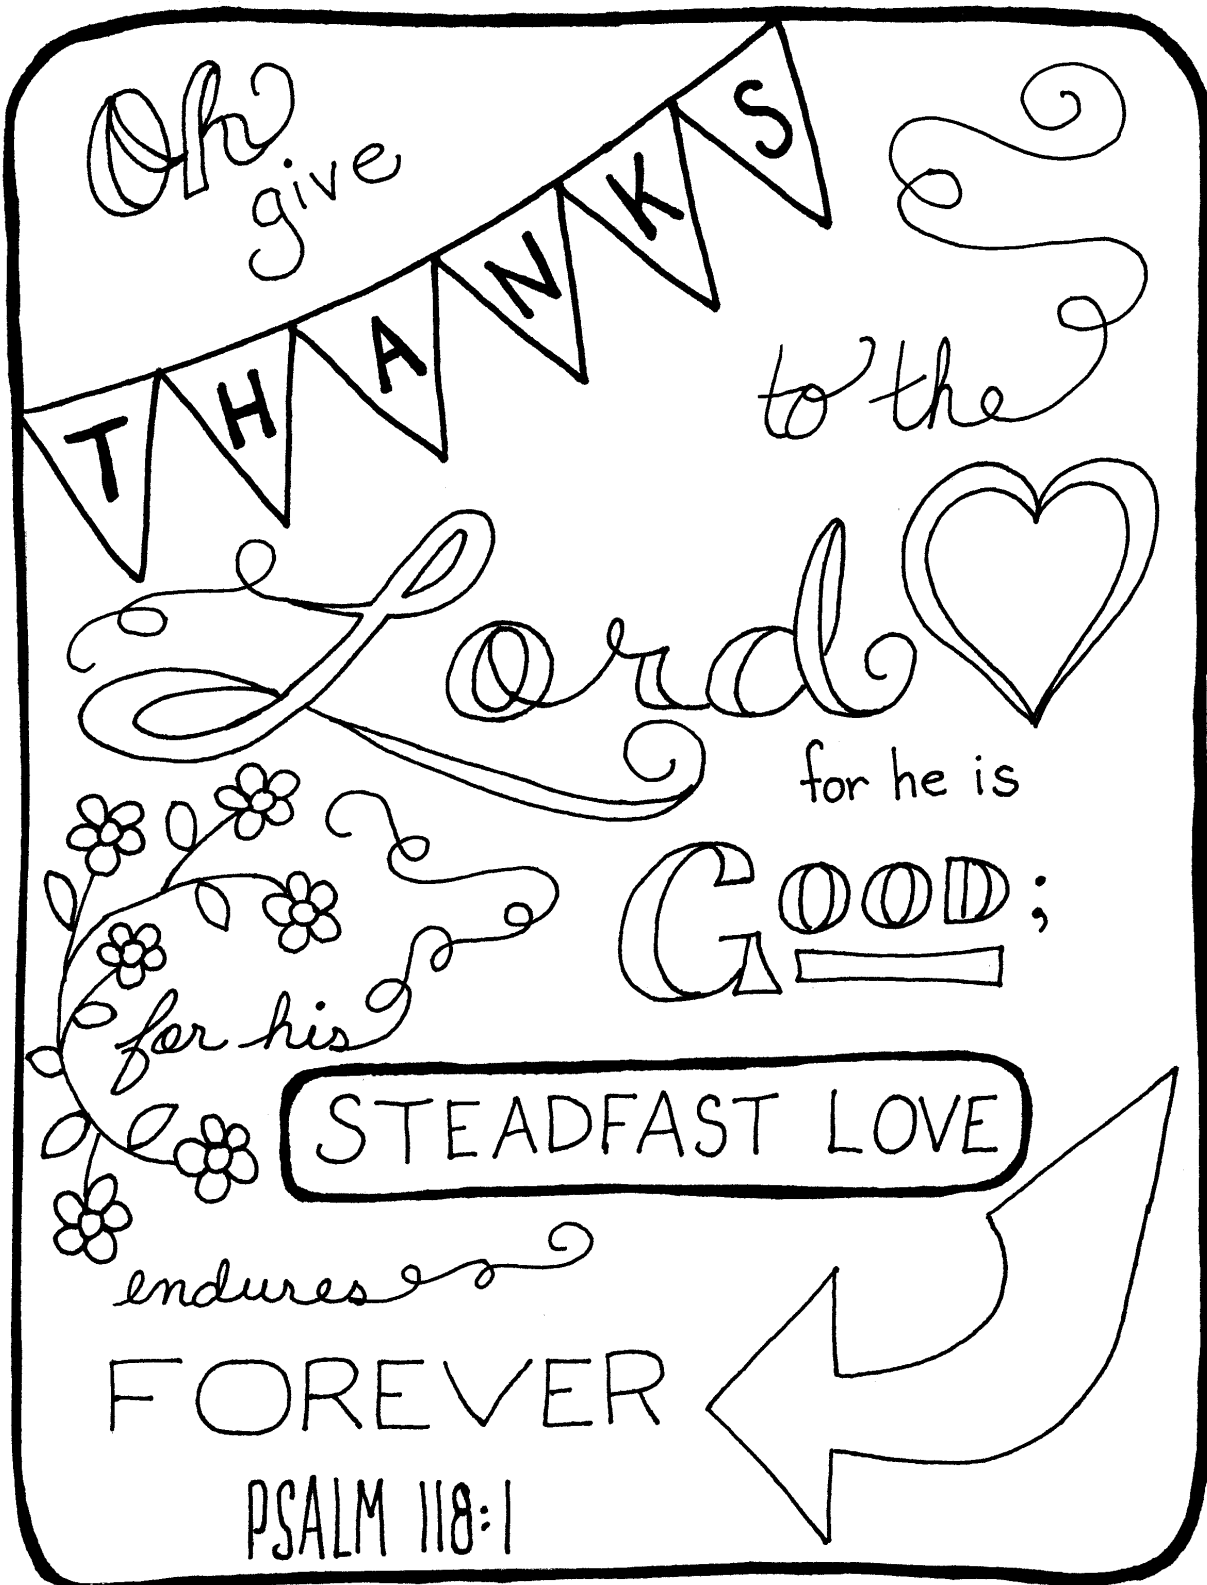 Oh
give
THANKS
to the
Lord
for he is
GOOD;
for his
STEADFAST LOVE
endures
FOREVER
PSALM 118:1